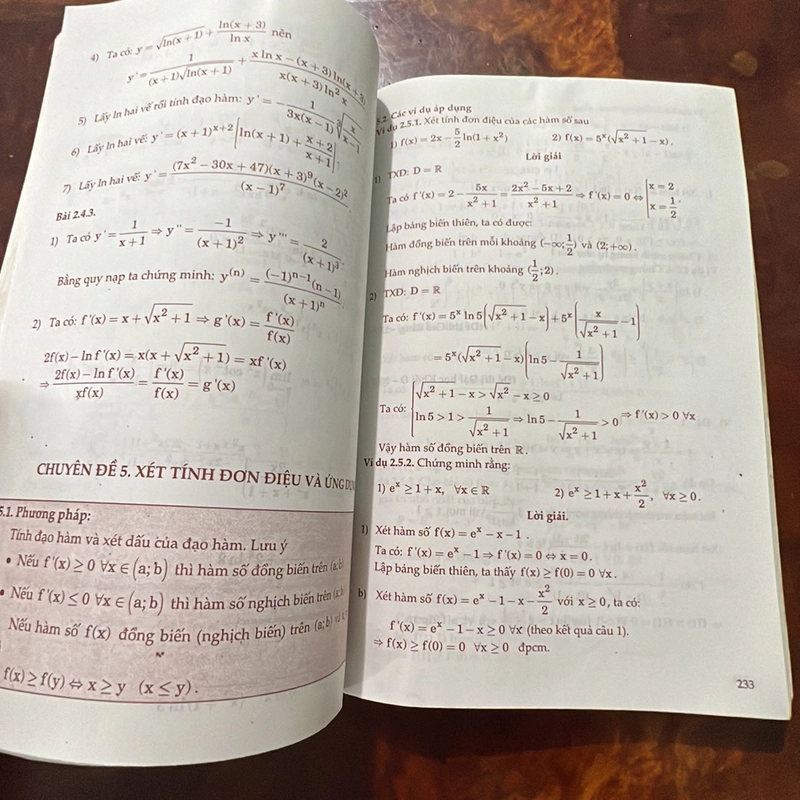 4) Ta có: y = √ln(x+1) + ln(x+3)/ln x nên
y' = 1/((x+1)√ln(x+1)) + (x ln x − (x+3)ln(x+3))/(x(x+3)ln² x)
5) Lấy ln hai vế rồi tính đạo hàm: y' = − 1/(3x(x−1)) ∛(x/(x−1))
6) Lấy ln hai vế: y' = (x+1)^(x+2) [ln(x+1) + (x+2)/(x+1)].
7) Lấy ln hai vế: y' = (7x² − 30x + 47)(x+3)⁹(x−2)²/(x−1)⁷
Bài 2.4.3.
1) Ta có y' = 1/(x+1) ⇒ y'' = −1/(x+1)² ⇒ y''' = 2/(x+1)³.
Bằng quy nạp ta chứng minh: y⁽ⁿ⁾ = (−1)ⁿ⁻¹(n−1)/(x+1)ⁿ.
2) Ta có: f'(x) = x + √(x²+1) ⇒ g'(x) = f'(x)/f(x)
2f(x) − ln f'(x) = x(x + √(x²+1)) = xf'(x)
⇒ (2f(x) − ln f'(x))/(xf(x)) = f'(x)/f(x) = g'(x)
CHUYÊN ĐỀ 5. XÉT TÍNH ĐƠN ĐIỆU VÀ ỨNG DỤNG
5.1. Phương pháp:
Tính đạo hàm và xét dấu của đạo hàm. Lưu ý
• Nếu f'(x) ≥ 0 ∀x ∈ (a; b) thì hàm số đồng biến trên (a; b)
• Nếu f'(x) ≤ 0 ∀x ∈ (a; b) thì hàm số nghịch biến trên (a; b)
Nếu hàm số f(x) đồng biến (nghịch biến) trên (a; b) và
f(x) ≥ f(y) ⇔ x ≥ y (x ≤ y).
5.2. Các ví dụ áp dụng
Ví dụ 2.5.1. Xét tính đơn điệu của các hàm số sau
1) f(x) = 2x − 5/2 ln(1 + x²) 2) f(x) = 5ˣ(√(x²+1) − x).
Lời giải
1) TXĐ: D = ℝ
Ta có f'(x) = 2 − 5x/(x²+1) = (2x² − 5x + 2)/(x²+1) ⇒ f'(x) = 0 ⇔ [x = 2, x = 1/2.
Lập bảng biến thiên, ta có được:
Hàm đồng biến trên mỗi khoảng (−∞; 1/2) và (2; +∞).
Hàm nghịch biến trên khoảng (1/2; 2).
2) TXĐ: D = ℝ
Ta có: f'(x) = 5ˣ ln 5(√(x²+1) − x) + 5ˣ(x/√(x²+1) − 1)
= 5ˣ(√(x²+1) − x)(ln 5 − 1/√(x²+1))
Ta có: {√(x²+1) − x > √x² − x ≥ 0
ln 5 > 1 > 1/√(x²+1) ⇒ ln 5 − 1/√(x²+1) > 0 ⇒ f'(x) > 0 ∀x
Vậy hàm số đồng biến trên ℝ.
Ví dụ 2.5.2. Chứng minh rằng:
1) eˣ ≥ 1 + x, ∀x ∈ ℝ 2) eˣ ≥ 1 + x + x²/2, ∀x ≥ 0.
Lời giải.
1) Xét hàm số f(x) = eˣ − x − 1.
Ta có: f'(x) = eˣ − 1 ⇒ f'(x) = 0 ⇔ x = 0.
Lập bảng biến thiên, ta thấy f(x) ≥ f(0) = 0 ∀x.
b) Xét hàm số f(x) = eˣ − 1 − x − x²/2 với x ≥ 0, ta có:
f'(x) = eˣ − 1 − x ≥ 0 ∀x (theo kết quả câu 1).
⇒ f(x) ≥ f(0) = 0 ∀x ≥ 0 đpcm.
233